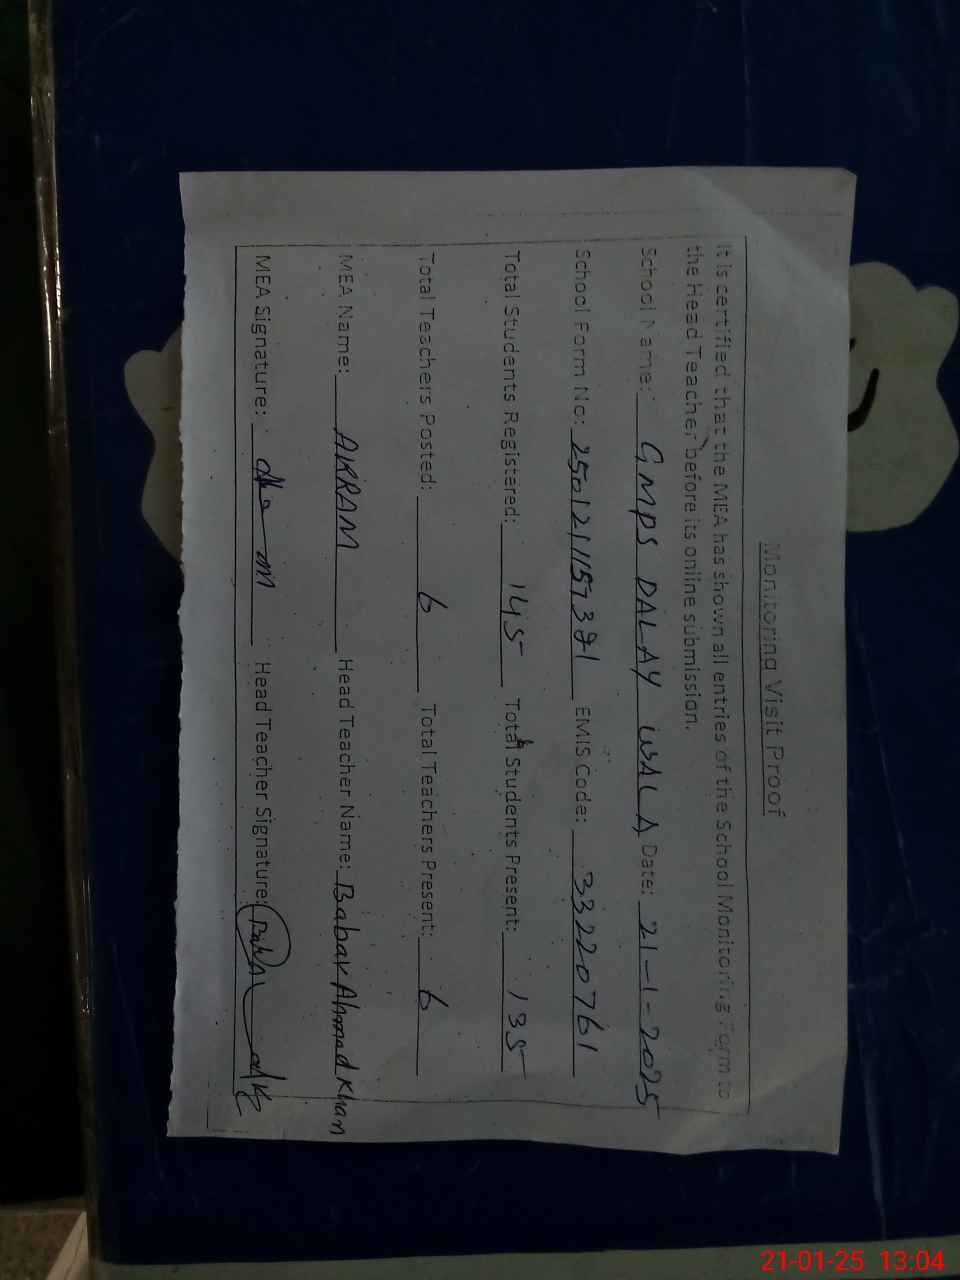 Monitoring Visit Proof
It is certified that the MEA has shown all entries of the School Monitoring Form to
the Head Teacher before its online submission.
School Name: GMPS DALAY WALA Date: 21-1-2025
School Form No: EMIS Code: 33220761
Total Students Registered: 145 Total Students Present: 135
Total Teachers Posted: 6 Total Teachers Present: 6
MEA Name: AKRAM Head Teacher Name: Babar Ahmad Khan
MEA Signature: Head Teacher Signature:
21-01-25 13:04